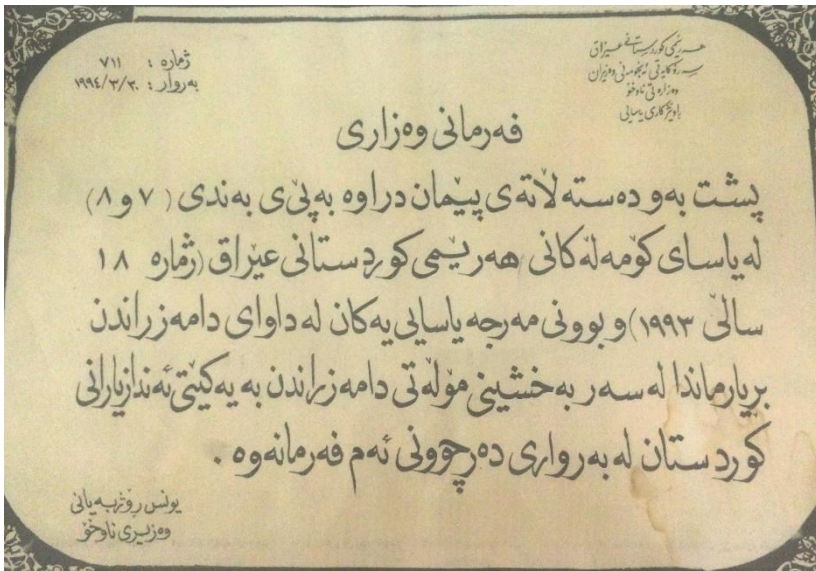 هەرێمی کوردستانی عیراق
سەرۆکایەتی ئەنجومەنی وەزیران
وەزارەتی ناوخۆ
راوێژکاری یاسایی
ژمارە : ٧١١
بەروار : ١٩٩٤/٣/٣٠
فەرمانی وەزاری
پشت بەو دەستەڵاتەی پێمان دراوە بەپێی بەندی (٧ و ٨)
لە یاسای کۆمەڵەکانی هەرێمی کوردستانی عێراق (ژمارە ١٨
ساڵی ١٩٩٣) و بوونی مەرجە یاسایی یەکان لە داوای دامەزراندن
بریارماندا لەسەر بەخشینی مۆڵەتی دامەزراندن بە یەکێتی ئەندازیارانی
کوردستان لە بەرواری دەرچوونی ئەم فەرمانەوە .
یونس رۆژبەیانی
وەزیری ناوخۆ